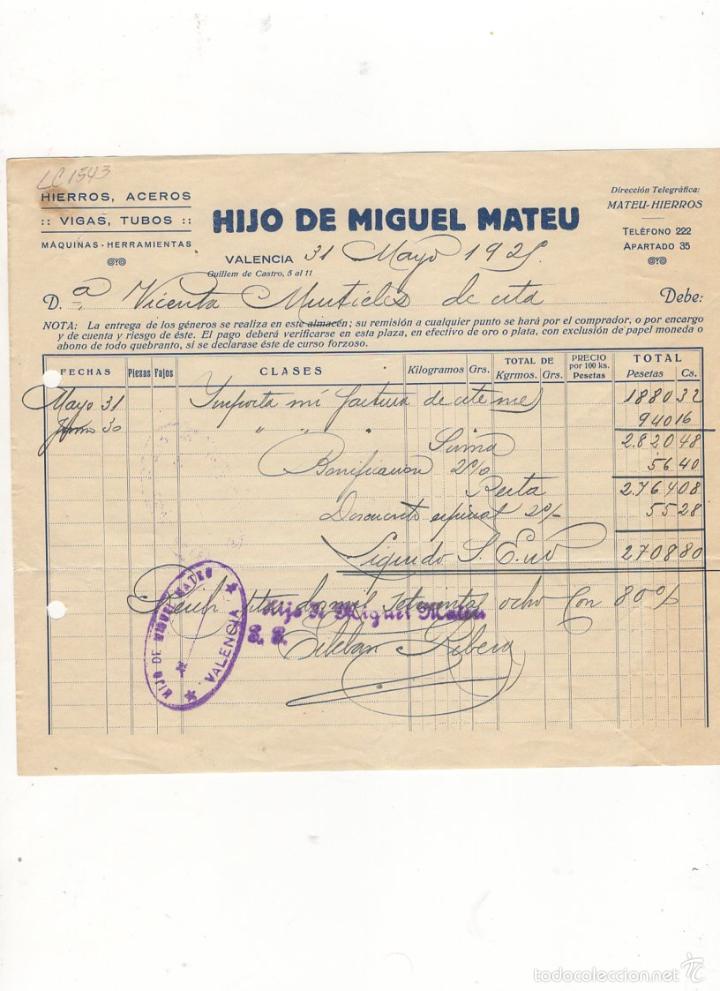 LC 1543
HIERROS, ACEROS
:: VIGAS, TUBOS ::
MÁQUINAS-HERRAMIENTAS
HIJO DE MIGUEL MATEU
Dirección Telegráfica:
MATEU-HIERROS
TELÉFONO 222
APARTADO 35
VALENCIA 31 Mayo 192
Guillem de Castro, 5 al 11
D.ª Vicenta de esta Debe:
NOTA: La entrega de los géneros se realiza en este almacén; su remisión a cualquier punto se hará por el comprador, o por encargo
y de cuenta y riesgo de éste. El pago deberá verificarse en esta plaza, en efectivo de oro o plata, con exclusión de papel moneda o
abono de todo quebranto, si se declarase éste de curso forzoso.
FECHAS Piezas Fajos CLASES Kilogramos Grs. TOTAL DE Kgrmos. Grs. PRECIO por 100 ks. Pesetas TOTAL Pesetas Cs.
Mayo 31 Importa mi factura de este mes 1880 32
Junio 30 " " " 940 16
Suma 2.820 48
Bonificación 2% 56 40
Resta 2.764 08
Descuento especial 2% 55 28
Líquido S. E. u O 2708 80
Recibí dos mil setecientas ocho con 80%
Hijo de Miguel Mateu
P. P.
Esteban Ribera
HIJO DE MIGUEL MATEU
VALENCIA
todocoleccion.net